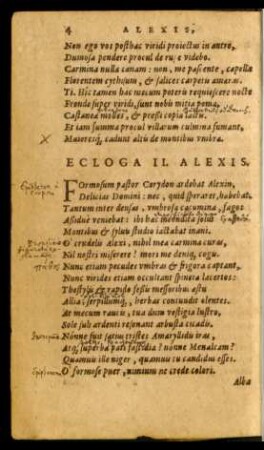 4 ALEXIS,
Non ego vos posthac viridi proiectus in antro,
Dumosa pendere procul de rupe videbo.
Carmina nulla canam: non, me pascente, capellæ
Florentem cythisum, & salices carpetis amaras.
Ti. Hic tamen hac mecum poteris requiescere nocte
Fronde super viridi, sunt nobis mitia poma,
Castaneæ molles, & pressi copia lactis.
Et iam summa procul villarum culmina fumant,
Maioresq; cadunt altis de montibus vmbræ.
ECLOGA II. ALEXIS.
FOrmosum pastor Corydon ardebat Alexin,
Delicias Domini: nec, quid speraret, habebat.
Tantum inter densas, vmbrosa cacumina, fagos
Assiduè veniebat: ibi hæc incondita solus
Montibus & syluis studio iactabat inani.
O crudelis Alexi, nihil mea carmina curas,
Nil nostri miserere? mori me deniq; coges.
Nunc etiam pecudes vmbras & frigora captant,
Nunc virides etiam occultant spineta lacertos:
Thestylis & rapido fessis messoribus æstu
Allia serpillumq́, herbas contundit olentes.
At mecum raucis, tua dum vestigia lustro,
Sole sub ardenti resonant arbusta cicadis.
Nónne fuit satius tristes Amaryllidis iras,
Atq; superba pati fastidia? nónne Menalcam?
Quamuis ille niger, quamuis tu candidus esses.
O formose puer, nimium ne crede colori.
Alba